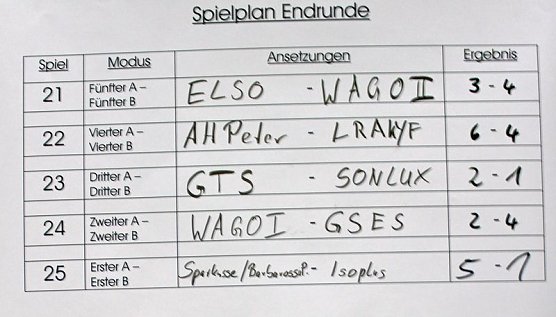 Spielplan Endrunde
Spiel Modus Ansetzungen Ergebnis
21 Fünfter A – Fünfter B ELSO - WAGO II 3 - 4
22 Vierter A – Vierter B AH Peter - LRAKYF 6 - 4
23 Dritter A – Dritter B GTS - SONLUX 2 - 1
24 Zweiter A – Zweiter B WAGO I - GSES 2 - 4
25 Erster A – Erster B Sparkasse/ - Isoplus 5 - 1